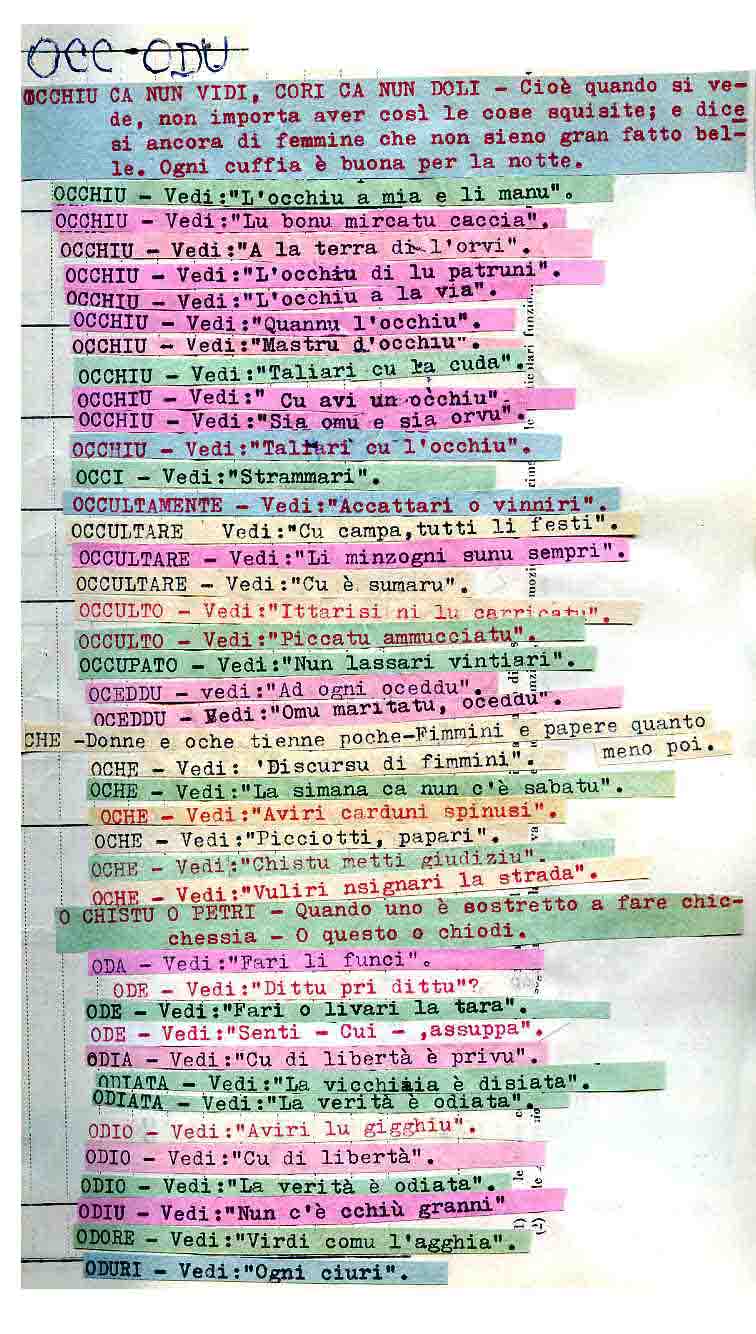 OCC-ODU
OCCHIU CA NUN VIDI, CORI CA NUN DOLI - Cioè quando si ve-
de, non importa aver così le cose squisite; e dice
si ancora di femmine che non sieno gran fatto bel-
le. Ogni cuffia è buona per la notte.
OCCHIU - Vedi:"L'occhiu a mia e li manu".
OCCHIU - Vedi:"Lu bonu mircatu caccia".
OCCHIU - Vedi:"A la terra di l'orvi".
OCCHIU - Vedi:"L'occhiu di lu patruni".
OCCHIU - Vedi:"L'occhiu a la via".
OCCHIU - Vedi:"Quannu l'occhiu".
OCCHIU - Vedi:"Mastru d'occhiu".
OCCHIU - Vedi:"Taliari cu la cuda".
OCCHIU - Vedi:" Cu avi un occhiu".
OCCHIU - Vedi:"Sia omu e sia orvu".
OCCHIU - Vedi:"Taliari cu l'occhiu".
OCCI - Vedi:"Strammari".
OCCULTAMENTE - Vedi:"Accattari o vinniri".
OCCULTARE Vedi:"Cu campa,tutti li festi".
OCCULTARE - Vedi:"Li minzogni sunu sempri".
OCCULTARE - Vedi:"Cu è sumaru".
OCCULTO - Vedi:"Ittarisi ni lu carricatu".
OCCULTO - Vedi:"Piccatu ammucciatu".
OCCUPATO - Vedi:"Nun lassari vintiari".
OCEDDU - vedi:"Ad ogni oceddu".
OCEDDU - Vedi:"Omu maritatu, oceddu".
CHE -Donne e oche tienne poche-Fimmini e papere quanto
meno poi.
OCHE - Vedi: 'Discursu di fimmini".
OCHE - Vedi:"La simana ca nun c'è sabatu".
OCHE - Vedi:"Aviri carduni spinusi".
OCHE - Vedi:"Picciotti, papari".
OCHE - Vedi:"Chistu metti giudiziu".
OCHE - Vedi:"Vuliri nsignari la strada".
O CHISTU O PETRI - Quando uno è sostretto a fare chic-
chessia - O questo o chiodi.
ODA - Vedi:"Fari li funci".
ODE - Vedi:"Dittu pri dittu"?
ODE - Vedi:"Fari o livari la tara".
ODE - Vedi:"Senti - Cui - ,assuppa".
ODIA - Vedi:"Cu di libertà è privu".
ODIATA - Vedi:"La vicchiaia è disiata".
ODIATA - Vedi:"La verità è odiata".
ODIO - Vedi:"Aviri lu gigghiu".
ODIO - Vedi:"Cu di libertà".
ODIO - Vedi:"La verità è odiata".
ODIU - Vedi:"Nun c'è cchiù granni"
ODORE - Vedi:"Virdi comu l'agghia".
ODURI - Vedi:"Ogni ciuri".